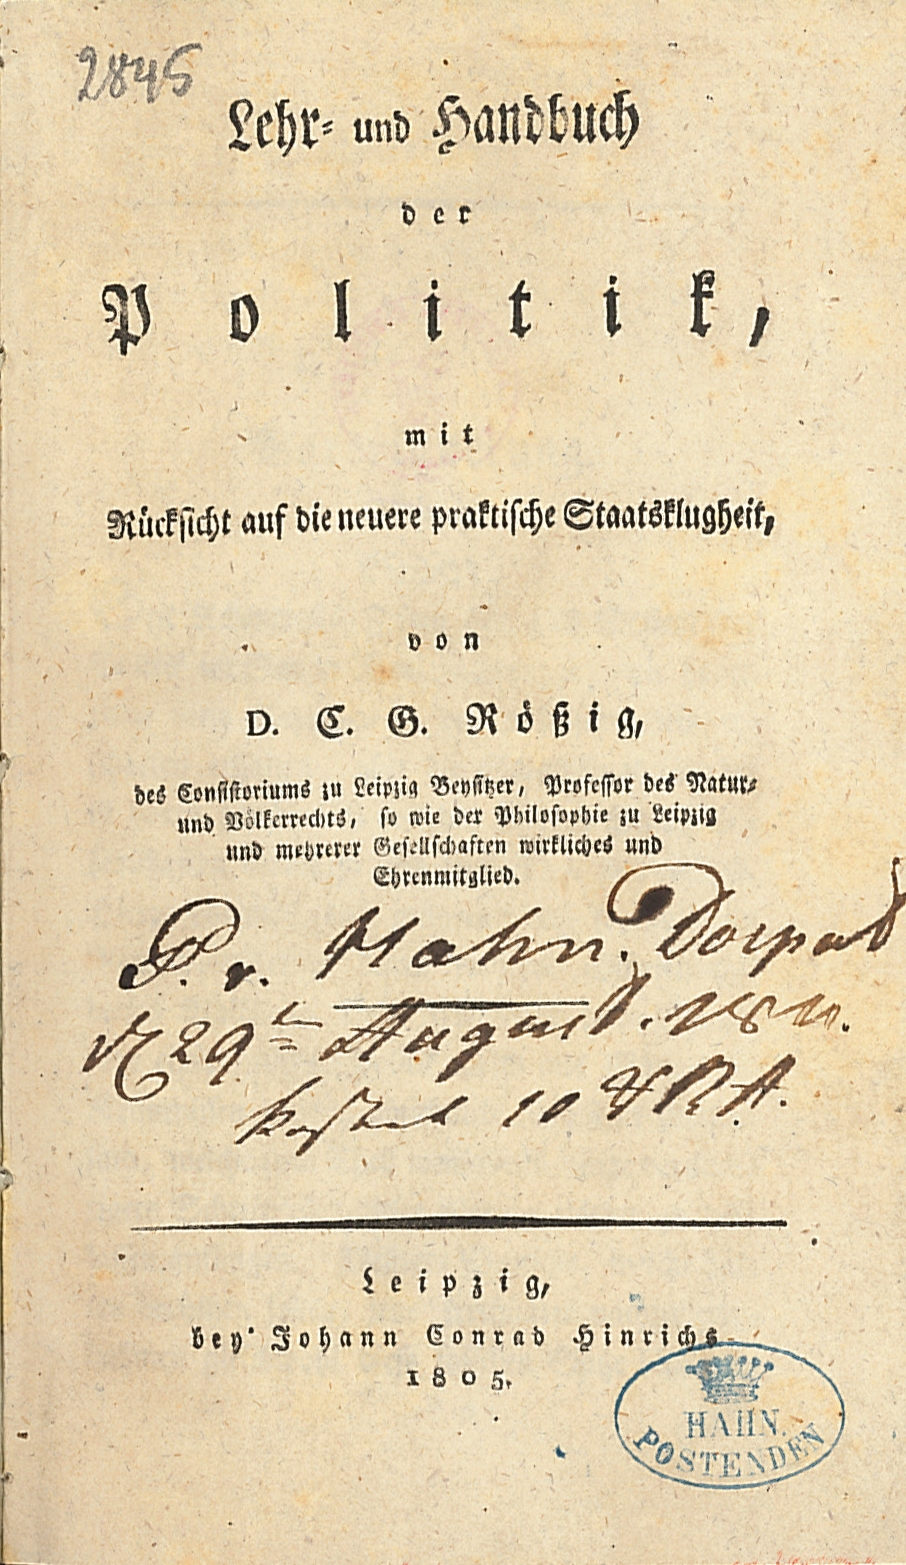 2845
Lehr- und Handbuch
der
Politik,
mit
Rücksicht auf die neuere praktische Staatsklugheit,
von
D. C. G. Rößig,
des Consistoriums zu Leipzig Beysitzer, Professor des Natur-
und Völkerrechts, so wie der Philosophie zu Leipzig
und mehrerer Gesellschaften wirkliches und
Ehrenmitglied.
P. v. Hahn. Dorpat
29 August.
kostet 10
Leipzig,
bey Johann Conrad Hinrichs
1805.
HAHN
POSTENDEN